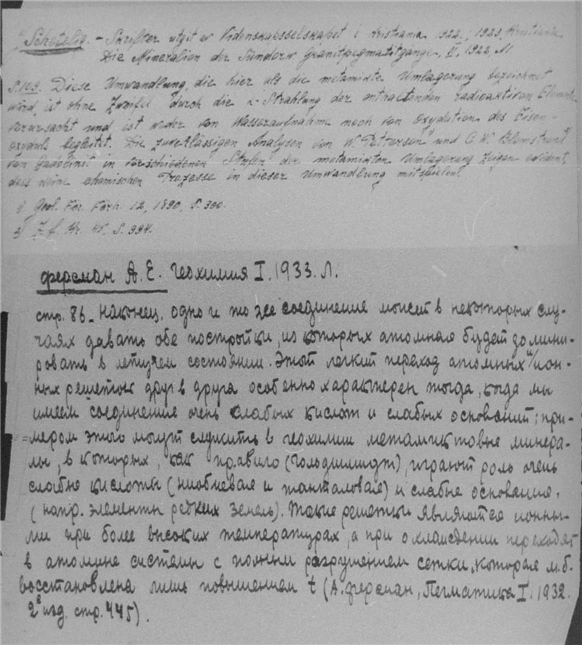 Schetelig. - Skrifter utgit av Videnskapsselskapet i Kristiania 1922, 1923, Kristiania
Die Mineralien der Südnorw. Granitpegmatitgänge, II, 1922, N1
S.103. Diese Umwandlung, die hier als die metamikte Umlagerung bezeichnet
wird, ist ohne Zweifel durch die α-Strahlung der radioaktiven
verursacht und ist weder von Wasseraufnahme noch von Oxydation des Eisen-
oxyduls begleitet. Die zuverlässigen Analysen von W. Petersson¹⁾ und C. W. Blomstrand²⁾
von Gadolinit in verschiedenen Stufen der metamikten Umlagerung zeigen evident,
dass keine chemischen Prozesse in dieser Umwandlung mitspielen.
1) Geol. För. Förh. 12, 1890, S.
2) Z. f. Kr. S.
Ферсман А. Е. Геохимия I. 1933. Л.
стр. 86_ Наконец, одно и то же соединение может в некоторых слу-
чаях давать обе постройки, из которых атомная будет домини-
ровать в летучем состоянии. Этот легкий переход атомных и ион-
ных решеток друг в друга особенно характерен тогда, когда мы
имеем соединение очень слабых кислот и слабых оснований; при-
мером этого могут служить в геохимии метамиктовые минера-
лы, в которых, как правило (Гольдшмидт), играют роль очень
слабые кислоты (ниобиевая и танталовая) и слабые основания,
(напр. элементы редких земель). Такие решетки являются ионны-
ми при более высоких температурах, а при охлаждении переходят
в атомные системы с полным разрушением сетки, которая м.б.
восстановлена лишь повышением t (А. Ферсман, Пегматиты I. 1932.
2е изд. стр. 445).